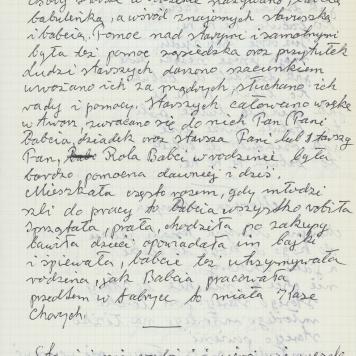 babuleńką, a wśród znajomych staruszką
i babcią. Pomoc nad starymi i samotnymi
była też pomoc sąsiedzka oraz przytułek
ludzi starszych darzono szacunkiem
uważano ich za mądrych, słuchano ich
rady i pomocy. Starszych całowano w rękę
w dłoń, zwracano się do nich Pan (Pani
Babcia, dziadek oraz Starsza Pani lub Starszy
Pan, Rola Babci w rodzinie była
bardzo pomocna dawniej i dziś.
Mieszkała często razem, gdy młodzi
szli do pracy to Babcia wszystko robiła
sprzątała, prała, chodziła po zakupy
bawiła dzieci opowiadała im bajki
i śpiewała, babcię też utrzymywała
rodzina, jak Babcia pracowała
przedtem w Fabryce to miała Kasę
Chorych.